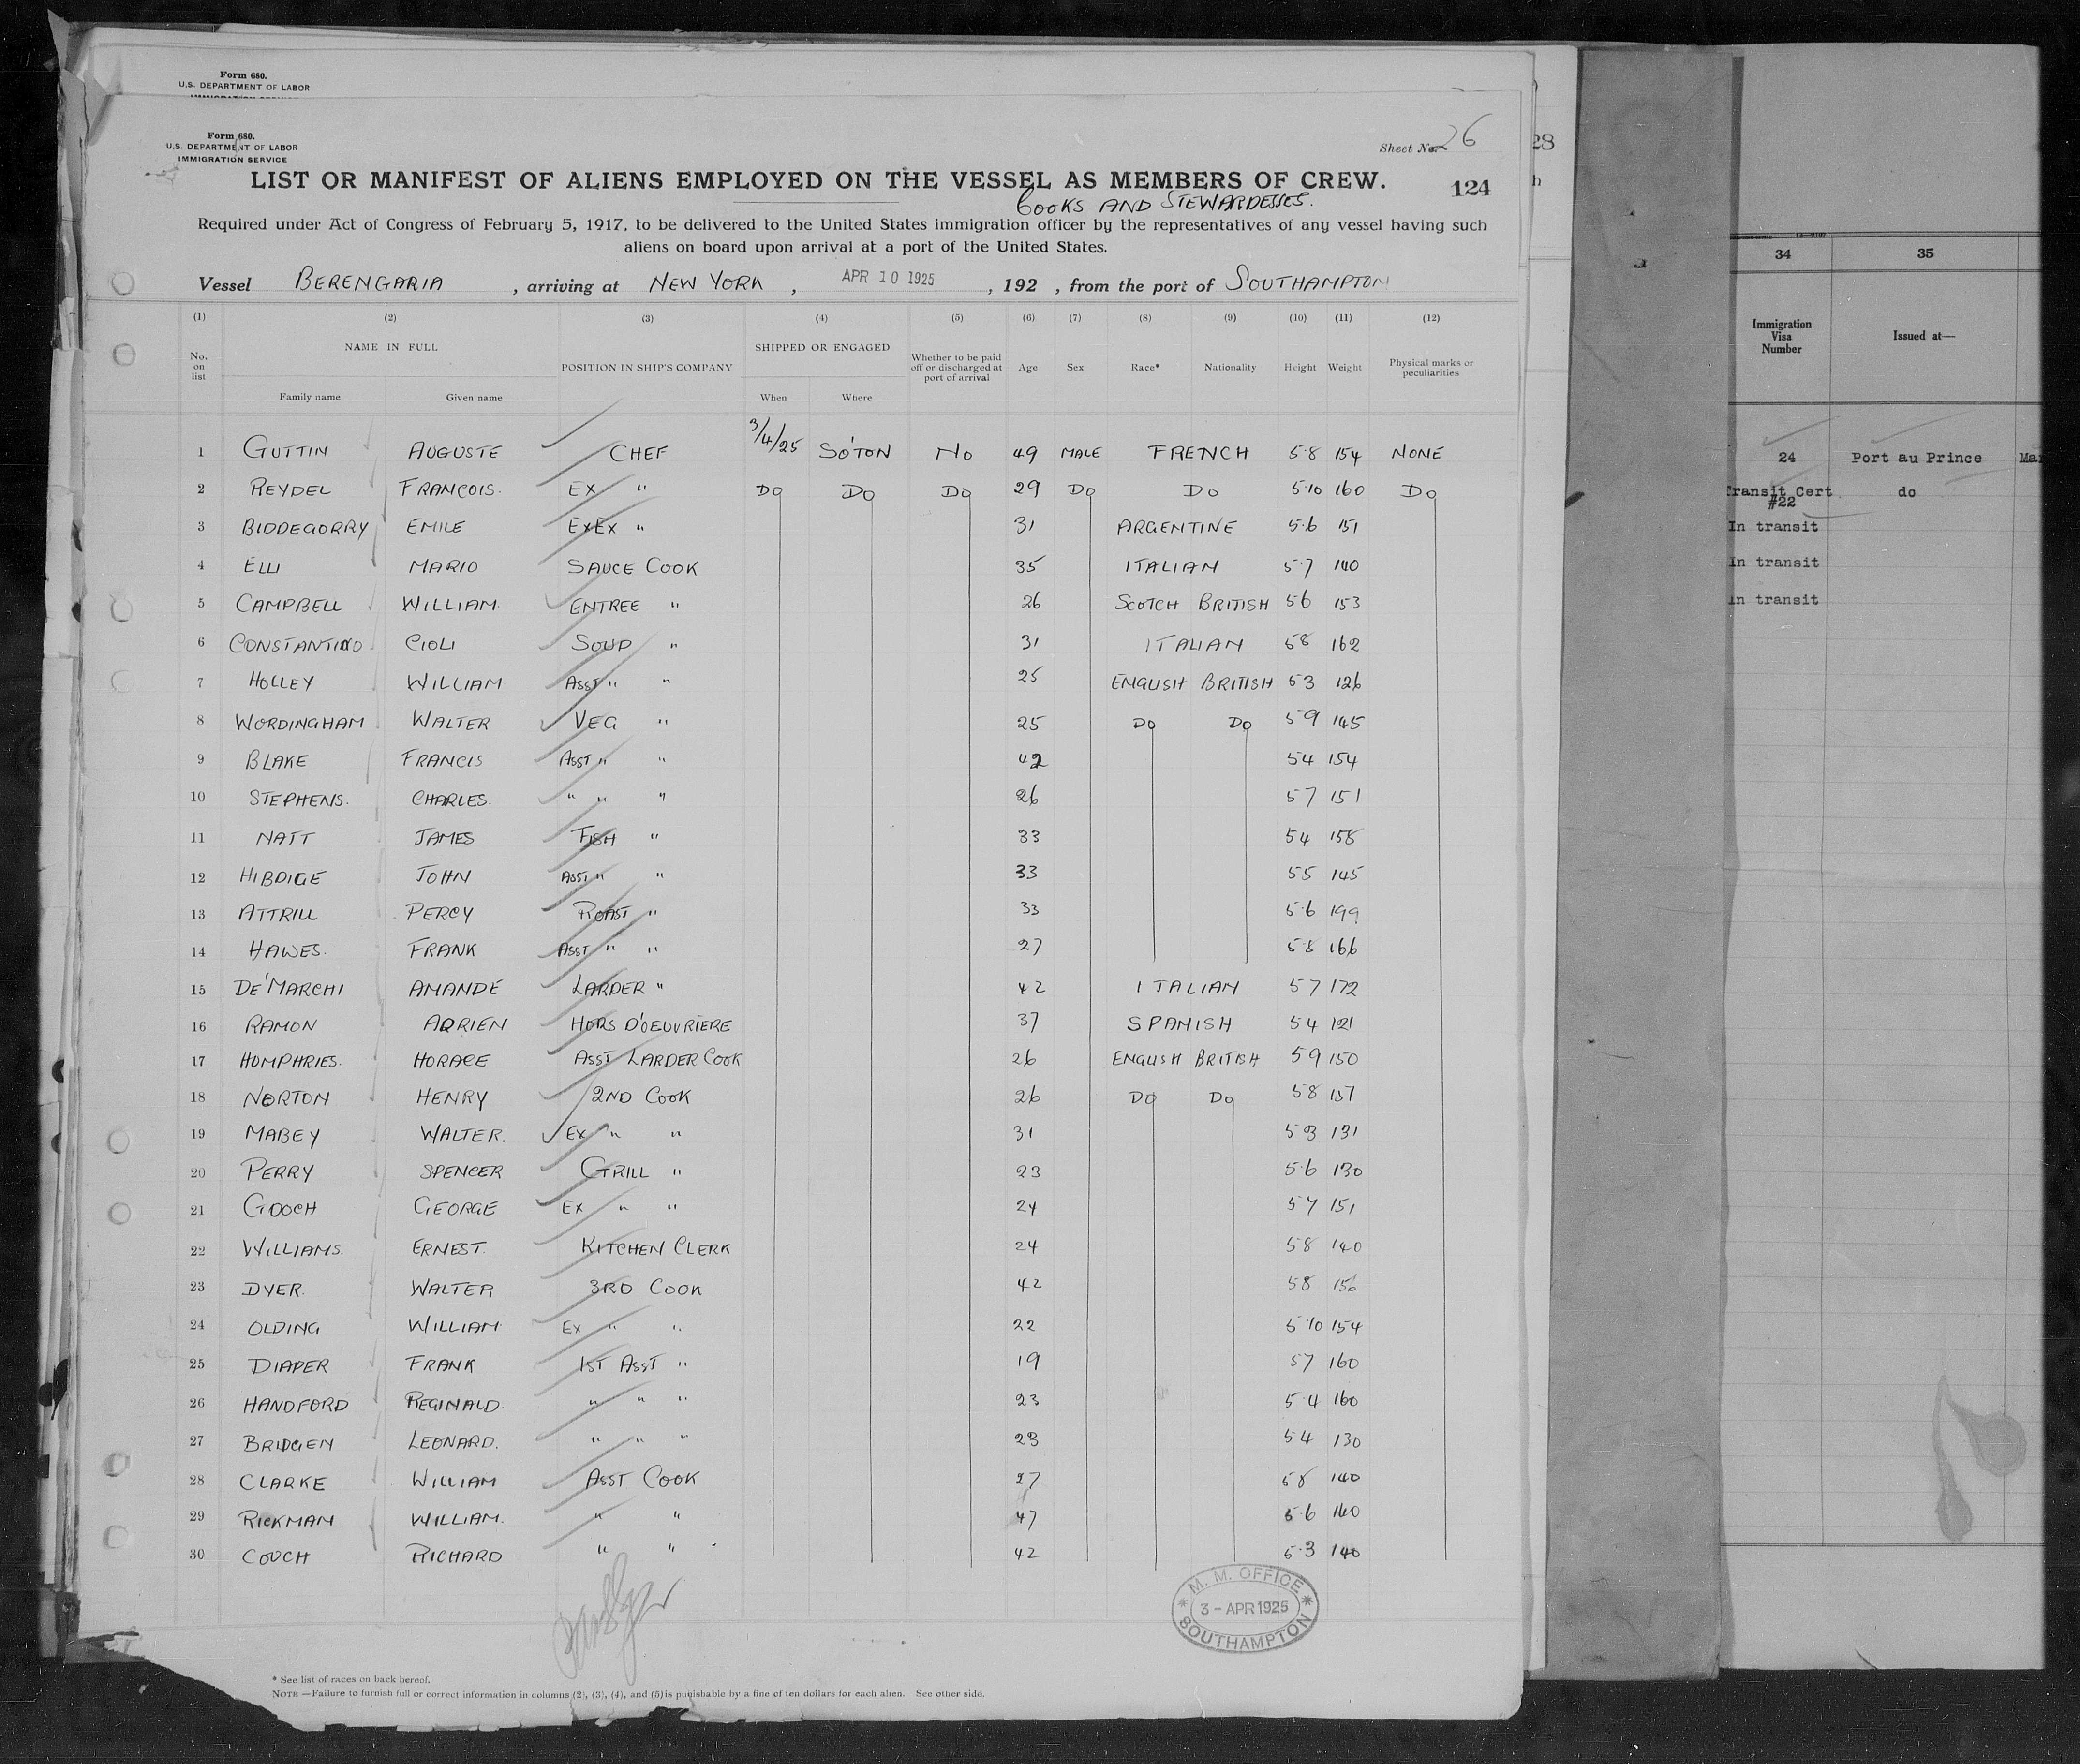 Form 680.
U.S. DEPARTMENT OF LABOR
Form 680.
U.S. DEPARTMENT OF LABOR
IMMIGRATION SERVICE
Sheet No. 26
28
LIST OR MANIFEST OF ALIENS EMPLOYED ON THE VESSEL AS MEMBERS OF CREW.
124
COOKS AND STEWARDESSES.
Required under Act of Congress of February 5, 1917, to be delivered to the United States immigration officer by the representatives of any vessel having such
aliens on board upon arrival at a port of the United States.
Vessel BERENGARIA, arriving at NEW YORK, APR 10 1925, 192 , from the port of SOUTHAMPTON
(1) (2) (3) (4) (5) (6) (7) (8) (9) (10) (11) (12)
No. on list NAME IN FULL POSITION IN SHIP'S COMPANY SHIPPED OR ENGAGED Whether to be paid off or discharged at port of arrival Age Sex Race* Nationality Height Weight Physical marks or peculiarities
Family name Given name When Where
1 GUTTIN AUGUSTE CHEF 3/4/25 SO'TON NO 49 MALE FRENCH 5.8 154 NONE
2 REYDEL FRANCOIS. EX " DO DO DO 29 DO DO 5.10 160 DO
3 BIDDEGORRY EMILE EXEX " 31 ARGENTINE 5.6 151
4 ELLI MARIO SAUCE COOK 35 ITALIAN 5.7 140
5 CAMPBELL WILLIAM. ENTREE " 26 SCOTCH BRITISH 5 6 153
6 CONSTANTINO CIOLI SOUP " 31 ITALIAN 5 8 162
7 HOLLEY WILLIAM ASST " " 25 ENGLISH BRITISH 5 3 126
8 WORDINGHAM WALTER VEG " 25 DO DO 5 9 145
9 BLAKE FRANCIS ASST " " 42 5 4 154
10 STEPHENS. CHARLES. " " " 26 5 7 151
11 NATT JAMES FISH " 33 5 4 158
12 HIBDIGE JOHN ASST " " 33 5 5 145
13 ATTRILL PERCY ROAST " 33 5.6 199
14 HAWES. FRANK ASST " " 27 5.8 166
15 DE'MARCHI AMANDE LARDER " 42 ITALIAN 5 7 172
16 RAMON ADRIEN HORS D'OEUVRIERE 37 SPANISH 5 4 121
17 HUMPHRIES. HORACE ASST LARDER COOK 26 ENGLISH BRITISH 5 9 150
18 NORTON HENRY 2ND COOK 26 DO DO 5 8 157
19 MABEY WALTER. EX " " 31 5 3 131
20 PERRY SPENCER GRILL " 23 5.6 130
21 GOOCH GEORGE EX " " 24 5 7 151
22 WILLIAMS. ERNEST. KITCHEN CLERK 24 5 8 140
23 DYER. WALTER 3RD COOK 42 5 8 156
24 OLDING WILLIAM EX " " 22 5 10 154
25 DIAPER FRANK 1ST ASST " 19 5 7 160
26 HANDFORD REGINALD. " " " 23 5.4 160
27 BRIDGEN LEONARD. " " " 23 5 4 130
28 CLARKE WILLIAM ASST COOK 27 5 8 140
29 RICKMAN WILLIAM. " " 47 5.6 140
30 COUCH RICHARD " " 42 5.3 140
M. M. OFFICE
3 - APR 1925
SOUTHAMPTON
* See list of races on back hereof.
NOTE.—Failure to furnish full or correct information in columns (2), (3), (4), and (5) is punishable by a fine of ten dollars for each alien. See other side.
34 35
Immigration Visa Number Issued at—
24 Port au Prince
Transit Cert #22 do
In transit
In transit
In transit